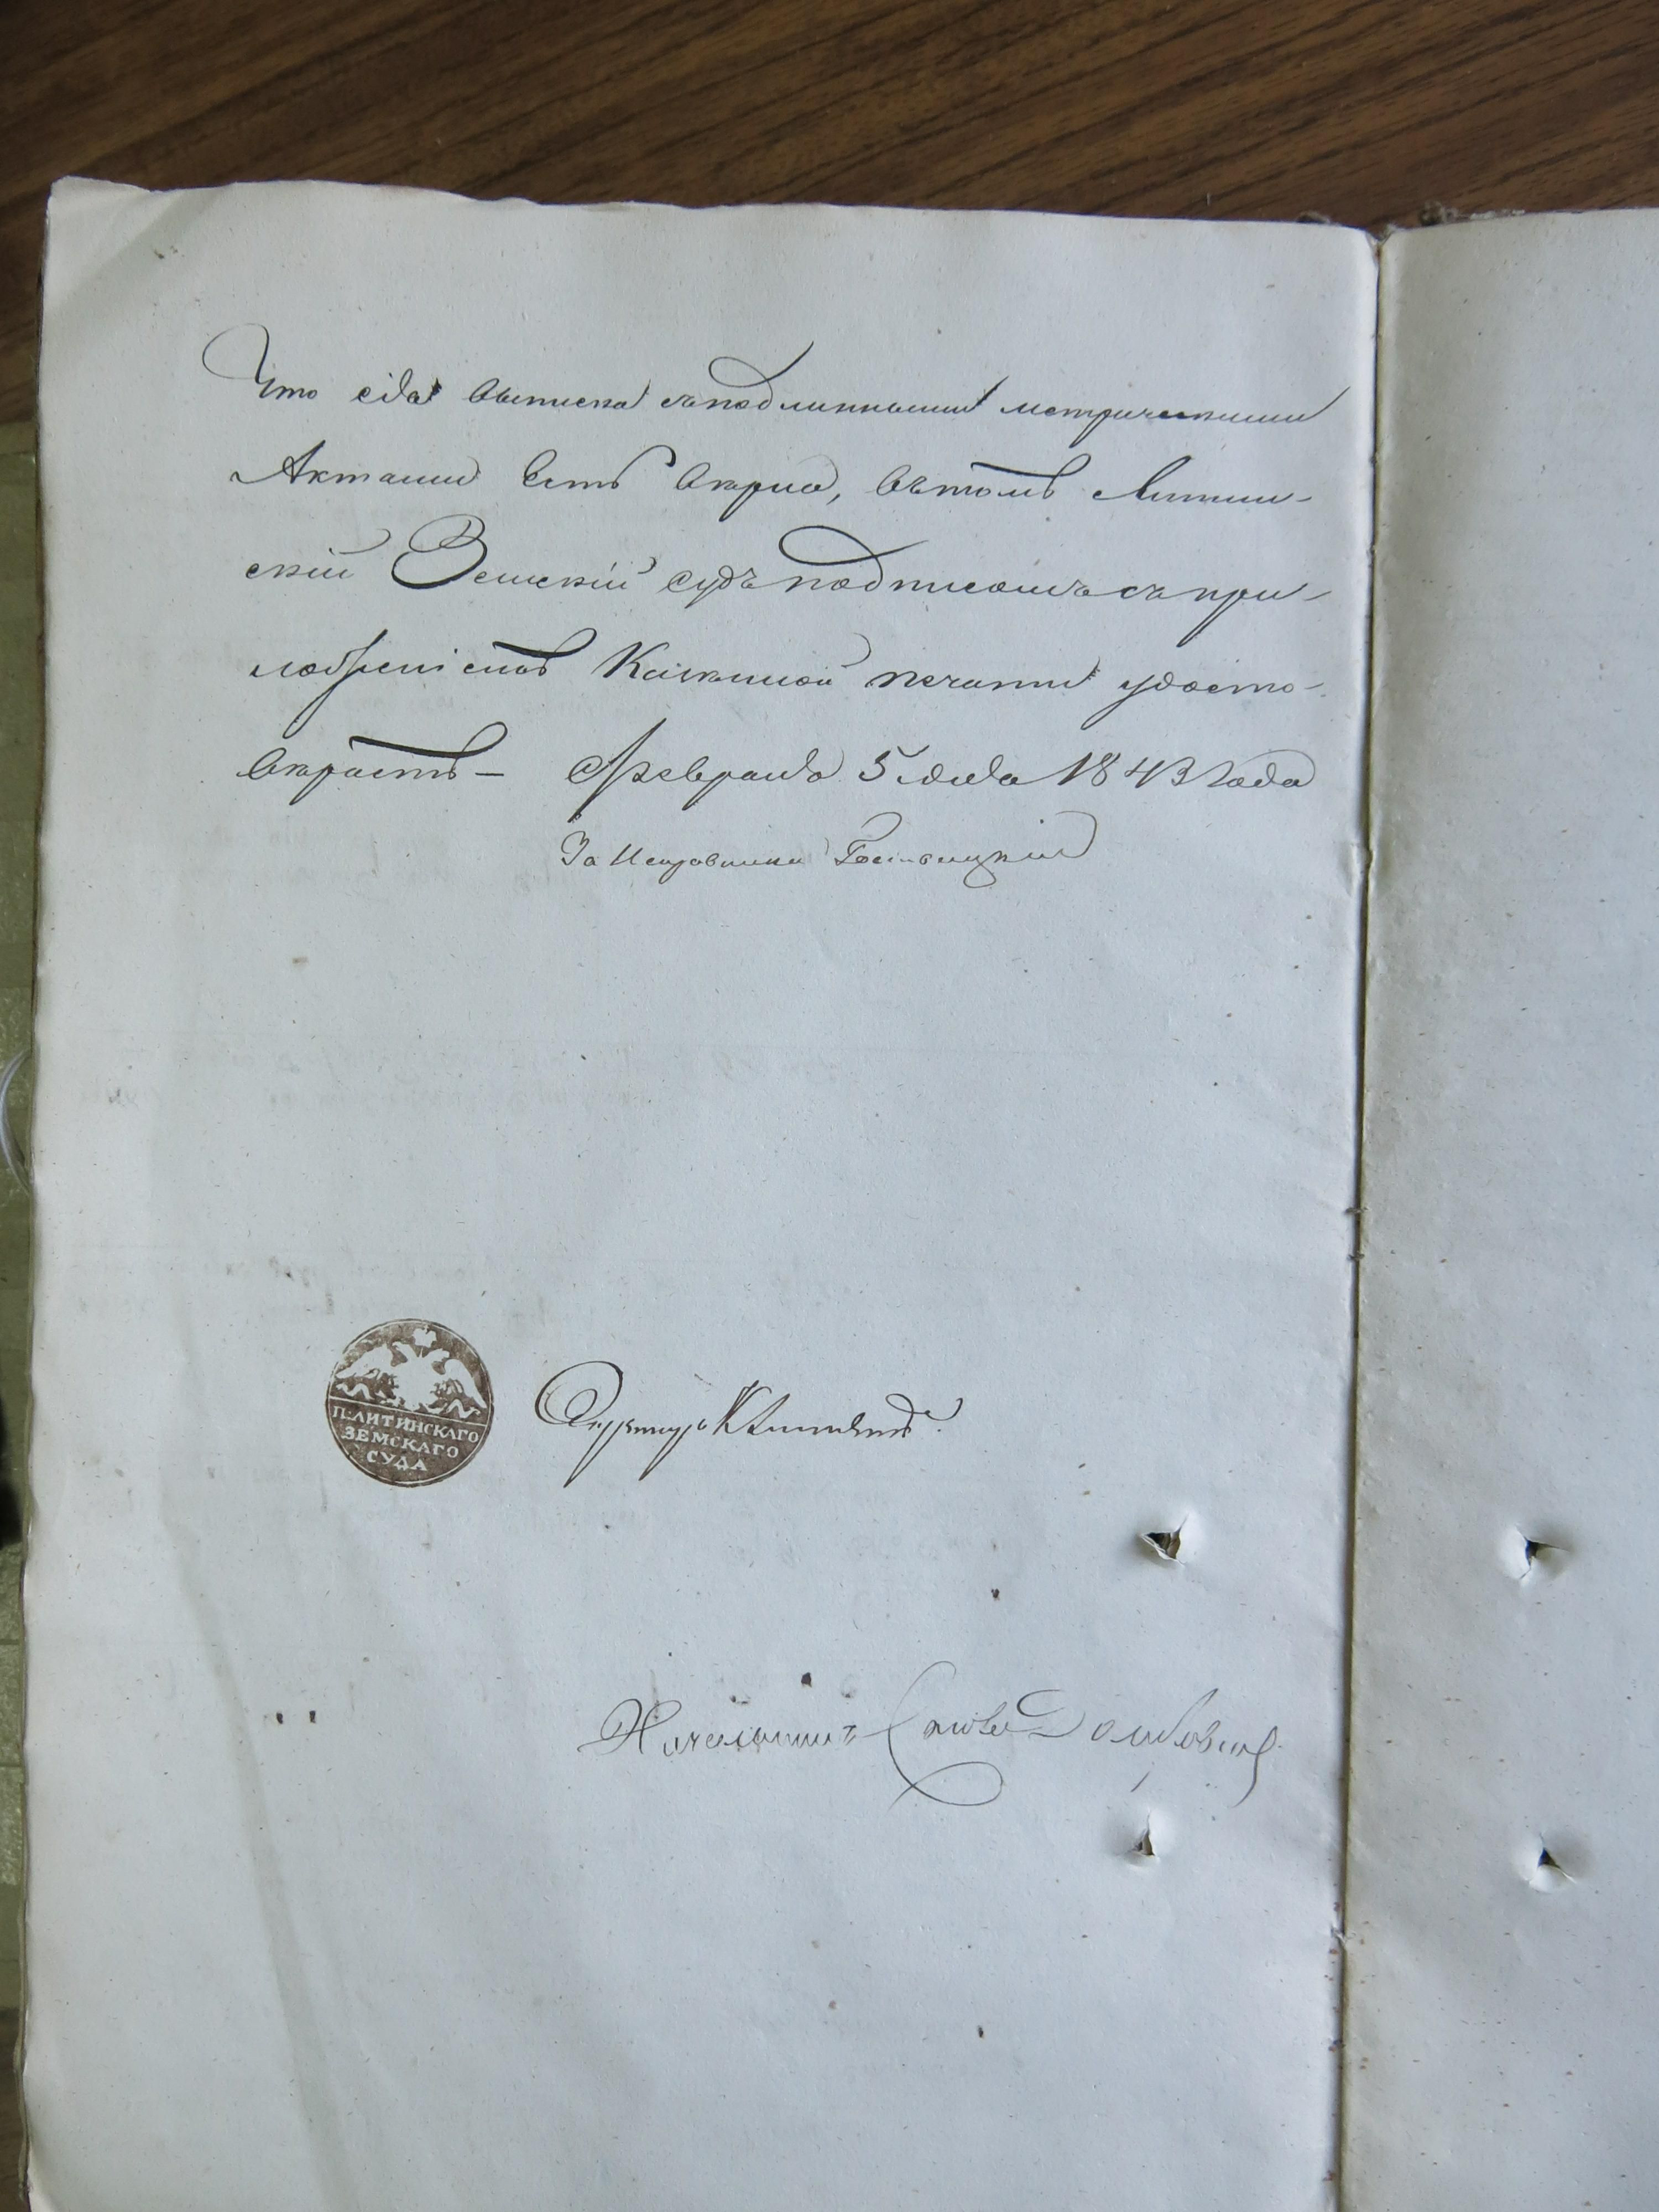 Что сія выписка съ подлинными метрическими
Актами есть вѣрна, въ томъ Литин-
скій Земскій судъ подписомъ съ при-
ложеніемъ Казенной печати удосто-
вѣряетъ — Февраля 5 дня 1843 года
За Исправника
П: ЛИТИНСКАГО
ЗЕМСКАГО
СУДА
Секретарь
Начальникъ